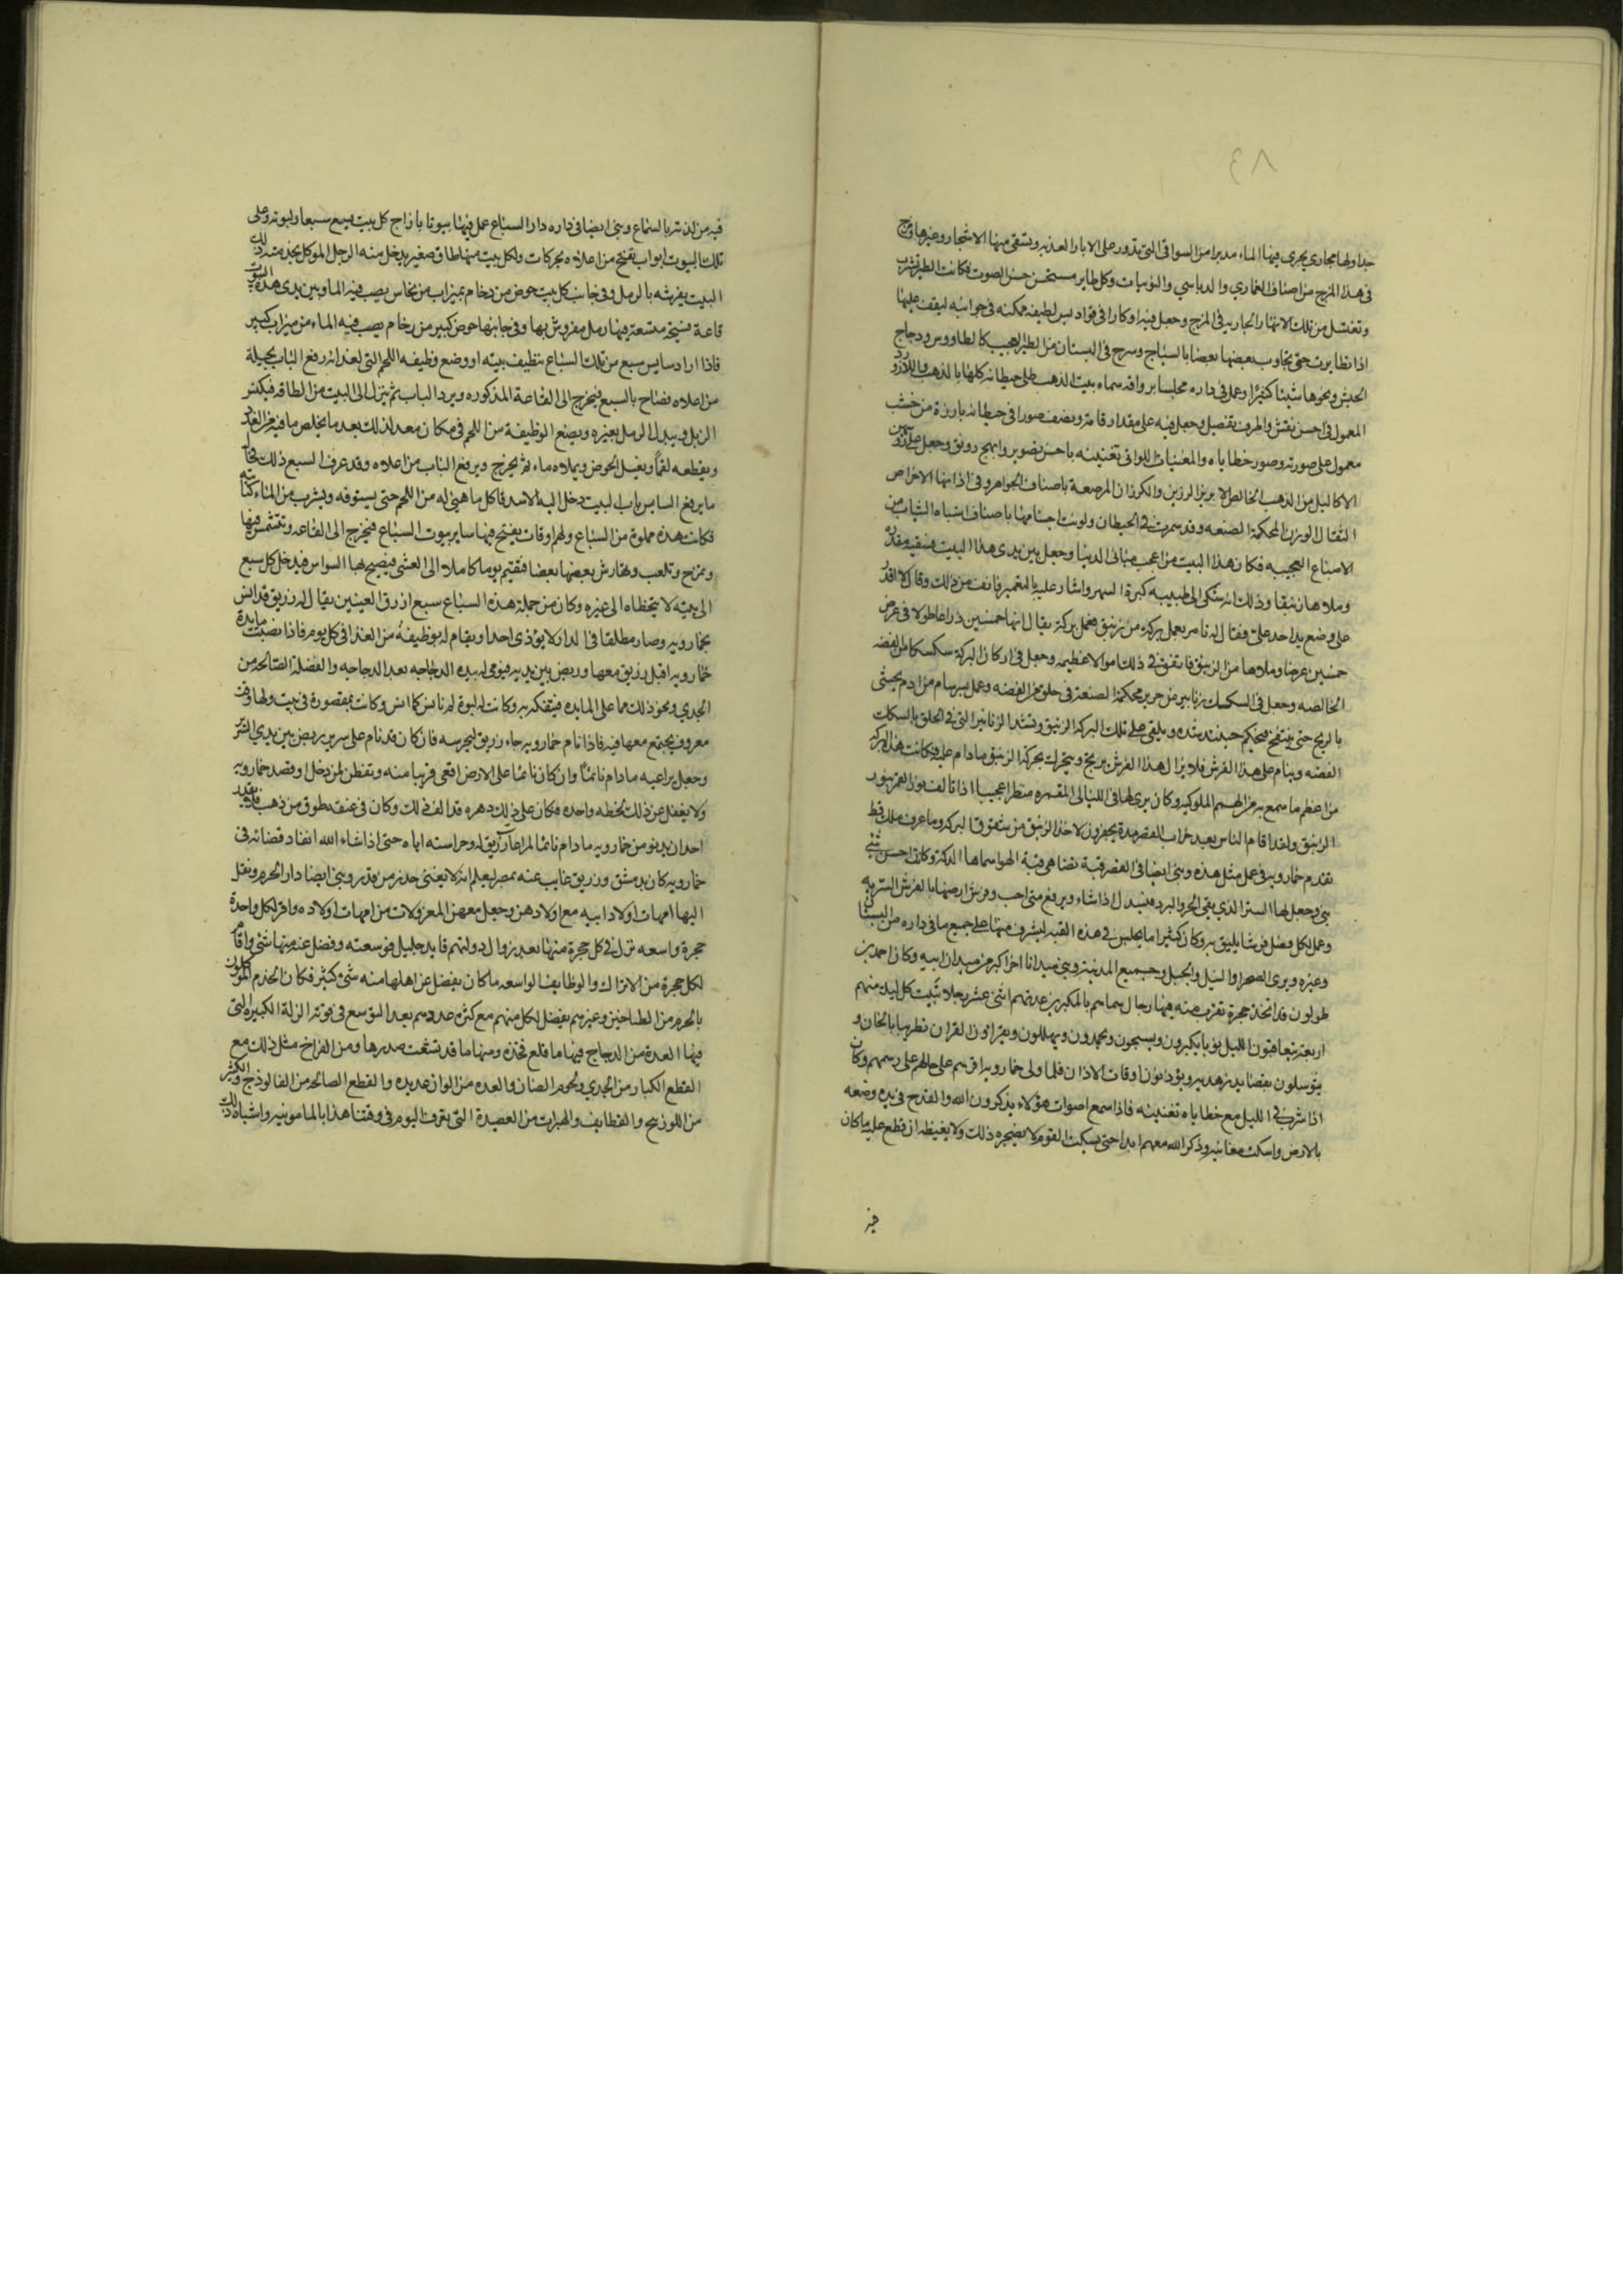 ٨٣
جداولها مجاري يجري فيها الماء مدبرا من السواقي التي تدور على الابار العذبه ويسقى منها الاشجار وغيرها وسرح
في هذا البرج من اصناف القماري والدباسي والنوبيات وكل طاير مستحسن حسن الصوت فكانت الطير تشرب
وتغتسل من تلك الانهار الجاريه في البرج وجعل فيه اوكارا في قواديس لطيفه ممكنه في جوانبه ليقف عليها
اذا تطايرت حتى يجاوب بعضها بعضا بالسياح وسرح في البستان من الطير العجيب كالطاووس ودجاج
الحبش ونحوها شيئا كثيرا وعمل في داره مجلسا برواقه سماه بيت الذهب طلى حيطانه كلها بالذهب واللازورد
المعمول في احسن نقش واظرف تفصيل وجعل فيه على مقدار قامة ونصف صورا في حيطانه بارزة من خشب
معمول على صورته وصور حظاياه والمغنيات اللواتي تغنينه باحسن تصوير وابهج رونق وجعل على رؤسهن
الاكاليل من الذهب الخالص الابريز الرزين والكوزان المرصعة باصناف الجواهر وفي اذانها الاخراص
الثقال الوزن المحكمة الصنعه وقد سمرت في الحيطان ولونت اجسامها باصناف اشباه الثياب من
الاصباغ العجيبه فكان هذا البيت من اعجب مباني الدنيا وجعل بين يدي هذا البيت فسقيه مقدر
وملاها زئبقا وذلك انه شكى الى طبيبه كثرة السهر واشار عليه بالتغميز فانف من ذلك وقال لا اقدر
على وضع يد احد علي فقال له تامر بعمل بركة من زئبق فعمل بركة يقال انها خمسين ذراعا طولا في عرض
خمسين عرضا وملاها من الزئبق فانفق في ذلك اموالا عظيمه وجعل في اركان البركه سككا من الفضه
الخالصه وجعل في السكك زنانير من حرير محكمة الصنعة في حلق من الفضه وعمل فرشا من ادم يحشى
بالريح حتى ينتفخ فيحكم حينئذ شده ويلقى على تلك البركه الزئبق وتشد الزنانير التي في الحلق بالسكك
الفضه وينام على هذا الفرش فلا يزال هذا الفرش يرتج ويتحرك بحركة الزئبق ما دام عليه فكانت هذه البركه
من اعظم ما سمع به من الهمم الملوكيه وكان يرى لها في الليالي المقمره منظرا عجيبا اذا تالف نور القمر بنور
الزئبق ولقد اقام الناس بعد خراب القصر مدة يحفرون لاخذ الزئبق من شقوق البركه وما عرف ملك قط
تقدم خمارويه في عمل مثل هذه وبنى ايضا في القصر قبة تضاهي قبة الهوا سماها الدكة وكانت احسن شئ
بني وجعل لها الستر الذي يقي الحر والبرد فيسدل اذا شاء ويرفع متى احب وفرش ارضها بالفرش السريه
وعمل لكل فصل فرشا يليق به وكان كثيرا ما يجلس في هذه القبه ليشرف منها على جميع ما في داره من البستان
وغيره ويرى الصحرا والنيل والجبل وجميع المدينة وبنى ميدانا اخر اكبر من ميدان ابيه وكان احمد بن
طولون قد اتخذ حجرة تقرب منه فيها رجال سماهم بالمكبرين عدتهم اثنى عشر رجلا تبيت كل ليلة منهم
اربعة يتعاقبون الليل نوبا يكبرون ويسبحون ويحمدون ويهللون ويقرأون القران تطريبا بالحان و
يتوسلون بقصايد زهديه ويؤذنون اوقات الاذان فلما ولي خمارويه اقرهم على حالهم على رسمهم وكان
اذا شرب في الليل مع حظاياه تغنينه فاذا سمع اصوات هؤلاء يذكرون الله والقدح في يده وضعه
بالارض واسكت مغانيه وذكر الله معهم ابدا حتى يسكت القوم لا يضجره ذلك ولا يغيظه ان قطع عليه ما كان
فيه
فيه من لذته بالسماع وبنى ايضا في داره دار السباع عمل فيها بيوتا بازاج كل بيت يسع سبعا ولبوته وعلى
تلك البيوت ابواب تفتح من اعلاه بحركات ولكل بيت منها طاق صغير يدخل منه الرجل الموكل بخدمته ذلك
البيت يفرشه بالرمل وفي جانب كل بيت حوض من رخام بميزاب من نحاس يصب فيه الما وبين يدي هذه البيوت
قاعة فسيحة متسعة فيها رمل مفروش بها وفي جانبها حوض كبير من رخام يصب فيه الماء من ميزاب كبير
فاذا اراد سايس سبع من تلك السباع تنظيف بيته او وضع وظيفه اللحم التي لغدائه رفع الباب بحيلة
من اعلاه وصاح بالسبع فيخرج الى القاعة المذكوره ويرد الباب ثم ينزل الى البيت من الطاقه فيكنس
الزبل ويبدل الرمل بغيره ويضع الوظيفة من اللحم في مكان معد لذلك بعد ما يخلص ما فيه من الغدد
ويقطعه لقما ويغسل الحوض ويملاه ماء ثم يخرج ويرفع الباب من اعلاه وقد عرف السبع ذلك فحال
ما يرفع السايس باب البيت دخل اليه الاسد فاكل ما هيئ له من اللحم حتى يستوفه ويشرب من الماء كفايته
فكانت هذه مملوة من السباع ولهم اوقات يفتح فيها ساير بيوت السباع فيخرج الى القاعه وتتشمس فيها
وتمرح وتلعب وتهارش بعضها بعضا فتقيم يوما كاملا الى العشي فيصيح بها السواس فيدخل كل سبع
الى بيته لا يتخطاه الى غيره وكان من جملة هذه السباع سبع ازرق العينين يقال له زريق قد انس
بخمارويه وصار مطلقا في الدار لا يؤذي احدا ويقام له بوظيفة من الغذا في كل يوم فاذا نصبت مايدة
خمارويه اقبل زريق معها وربض بين يديه فيومي له بيده الدجاجه بعد الدجاجه والفضلة الصالحه من
الجدي ونحو ذلك مما على المايده فيتفكه به وكانت له لبوة لم تانس كما انس وكانت مقصورة في بيت ولها وقت
معروف يجتمع معها فيه فاذا نام خمارويه جاء زريق ليحرسه فان كان قد نام على سرير ربض بين يدي السرير
وجعل يراعيه ما دام نائما وان كان نائما على الارض اقعى قريبا منه وتفطن لمن دخل او قصد خمارويه
ولا يغفل عن ذلك لحظه واحده فكان على ذلك دهره قد الف ذلك وكان في عنقه طوق من ذهب فلا يقدر
احد ان يدنو من خمارويه ما دام نائما لمراعاة زريق له وحراسته اياه حتى اذا شاء الله انفاذ قضائه في
خمارويه كان بدمشق وزريق غايب عنه بمصر ليعلم انه لا يغني حذر من قدر وبنى ايضا دار الحرم ونقل
اليها امهات اولاد ابيه مع اولادهن وجعل معهن المعزولات من امهات اولاده وافرد لكل واحدة
حجرة واسعه نزل في كل حجرة منها بعد زوال دولتهم قايد جليل فوسعته وفضل عنه منها شئ واقام
لكل حجرة من الانزال والوظايف الواسعه ما كان يفضل عن اهلها منه شئ كثير فكان الخدم الموكلون
بالحرم من الطباخين وغيرهم يفضل لكل منهم مع كثرة عددهم بعد التوسع في قوته الزلة الكبيره التي
فيها العدة من الدجاج فيها ما قلع فخذه ومنها ما قد تشعث صدرها ومن الفراخ مثل ذلك مع
القطع الكبار من الجدي ولحوم الضان والعده من الوان عديده والقطع الصالحه من الفالوذج والكثير
من اللوزينج والقطايف والهبرات من العصيدة التي تعرف اليوم في وقتنا هذا بالمامونيه واشباه ذلك